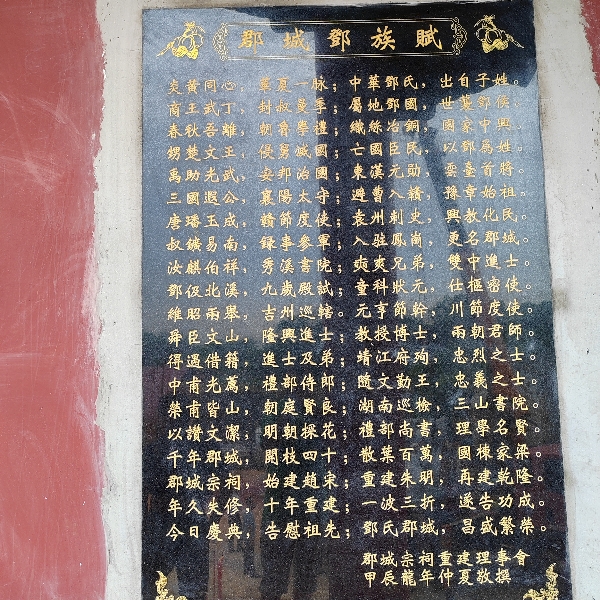 郡城鄧族賦
炎黃同心，華夏一脉；中華鄧氏，出自子姓。
商王武丁，封叔曼季；屬地鄧國，世襲鄧侯。
春秋吾離，朝魯學禮；織絲冶銅，國家中興。
甥楚文王，侵舅滅國；亡國臣民，以鄧爲姓。
禹助光武，安邦治國；東漢元勛，雲臺首將。
三國遐公，襄陽太守；避曹入贛，豫章始祖。
唐璠玉成，贛節度使；袁州刺史，興教化民。
叔鏻易南，録事參軍；入驻鳳崗，更名郡城。
汝麒伯祥，秀溪書院；奭爽兄弟，雙中進士。
鄧伋北溪，九歲殿試；童科狀元，仕樞密使。
維昭兩舉，吉州巡轄。元亨節幹，川節度使。
舜臣文山，隆興進士；教授博士，兩朝君師。
得遇借籍，進士及弟；靖江府殉，忠烈之士。
中甫光薦，禮部侍郎；隨文勤王，忠義之士。
榮甫皆山，朝庭賢良；湖南巡檢，三山書院。
以讚文潔，明朝探花；禮部尚書，理學名賢。
千年郡城，開枝四十；散葉百萬，國棟家梁。
郡城宗祠，始建趙宋；重建朱明，再建乾隆。
年久失修，十年重建；一波三折，遂告功成。
今日慶典，告慰祖先；鄧氏郡城，昌盛繁榮。
郡城宗祠重建理事會
甲辰龍年仲夏敬撰